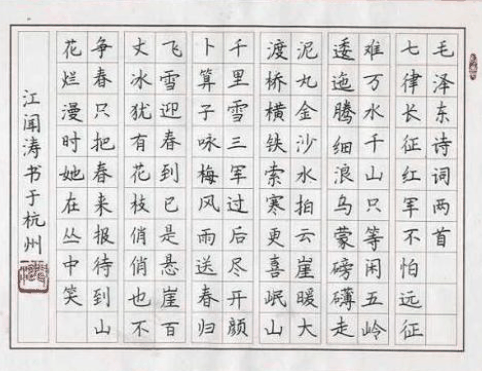 毛泽东诗词两首
七律长征红军不怕远征
难万水千山只等闲五岭
逶迤腾细浪乌蒙磅礴走
泥丸金沙水拍云崖暖大
渡桥横铁索寒更喜岷山
千里雪三军过后尽开颜
卜算子咏梅风雨送春归
飞雪迎春到已是悬崖百
丈冰犹有花枝俏俏也不
争春只把春来报待到山
花烂漫时她在丛中笑
江闻涛书于杭州